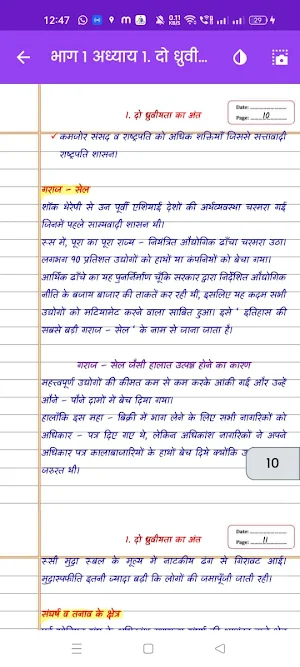 12:47
0.11
KB/S
29
भाग 1 अध्याय 1. दो ध्रुवी...
1. दो ध्रुवीयता का अंत
Date:
Page: 10
✓ कमजोर संसद व राष्ट्रपति को अधिक शक्तियाँ जिससे सत्तावादी
राष्ट्रपति शासन।
गराज - सेल
शॉक थेरेपी से उन पूर्वी एशियाई देशों की अर्थव्यवस्था चरमरा गई
जिनमें पहले साम्यवादी शासन थी।
रूस में, पूरा का पूरा राज्य - नियंत्रित औद्योगिक ढाँचा चरमरा उठा।
लगभग 90 प्रतिशत उद्योगों को हाथों या कंपनियों को बेचा गया।
आर्थिक ढाँचे का यह पुनर्निर्माण चूँकि सरकार द्वारा निर्देशित औद्योगिक
नीति के बजाय बाजार की ताकतें कर रही थी, इसलिए यह कदम सभी
उद्योगों को मटियामेट करने वाला साबित हुआ। इसे ' इतिहास की
सबसे बड़ी गराज - सेल ' के नाम से जाना जाता है।
गराज - सेल जैसी हालात उत्पन्न होने का कारण
महत्त्वपूर्ण उद्योगों की कीमत कम से कम करके आंकी गई और उन्हें
औने - पौने दामों में बेच दिया गया।
हालाँकि इस महा - बिक्री में भाग लेने के लिए सभी नागरिकों को
अधिकार - पत्र दिए गए थे, लेकिन अधिकांश नागरिकों ने अपने
अधिकार पत्र कालाबाजारियों के हाथों बेच दिये क्योंकि उ
जरुरत थी।
10
1. दो ध्रुवीयता का अंत
Date:
Page: 11
रूसी मुद्रा रूबल के मूल्य में नाटकीय ढंग से गिरावट आई।
मुद्रास्फीति इतनी ज्यादा बढ़ी कि लोगों की जमापूँजी जाती रही।
संघर्ष व तनाव के क्षेत्र